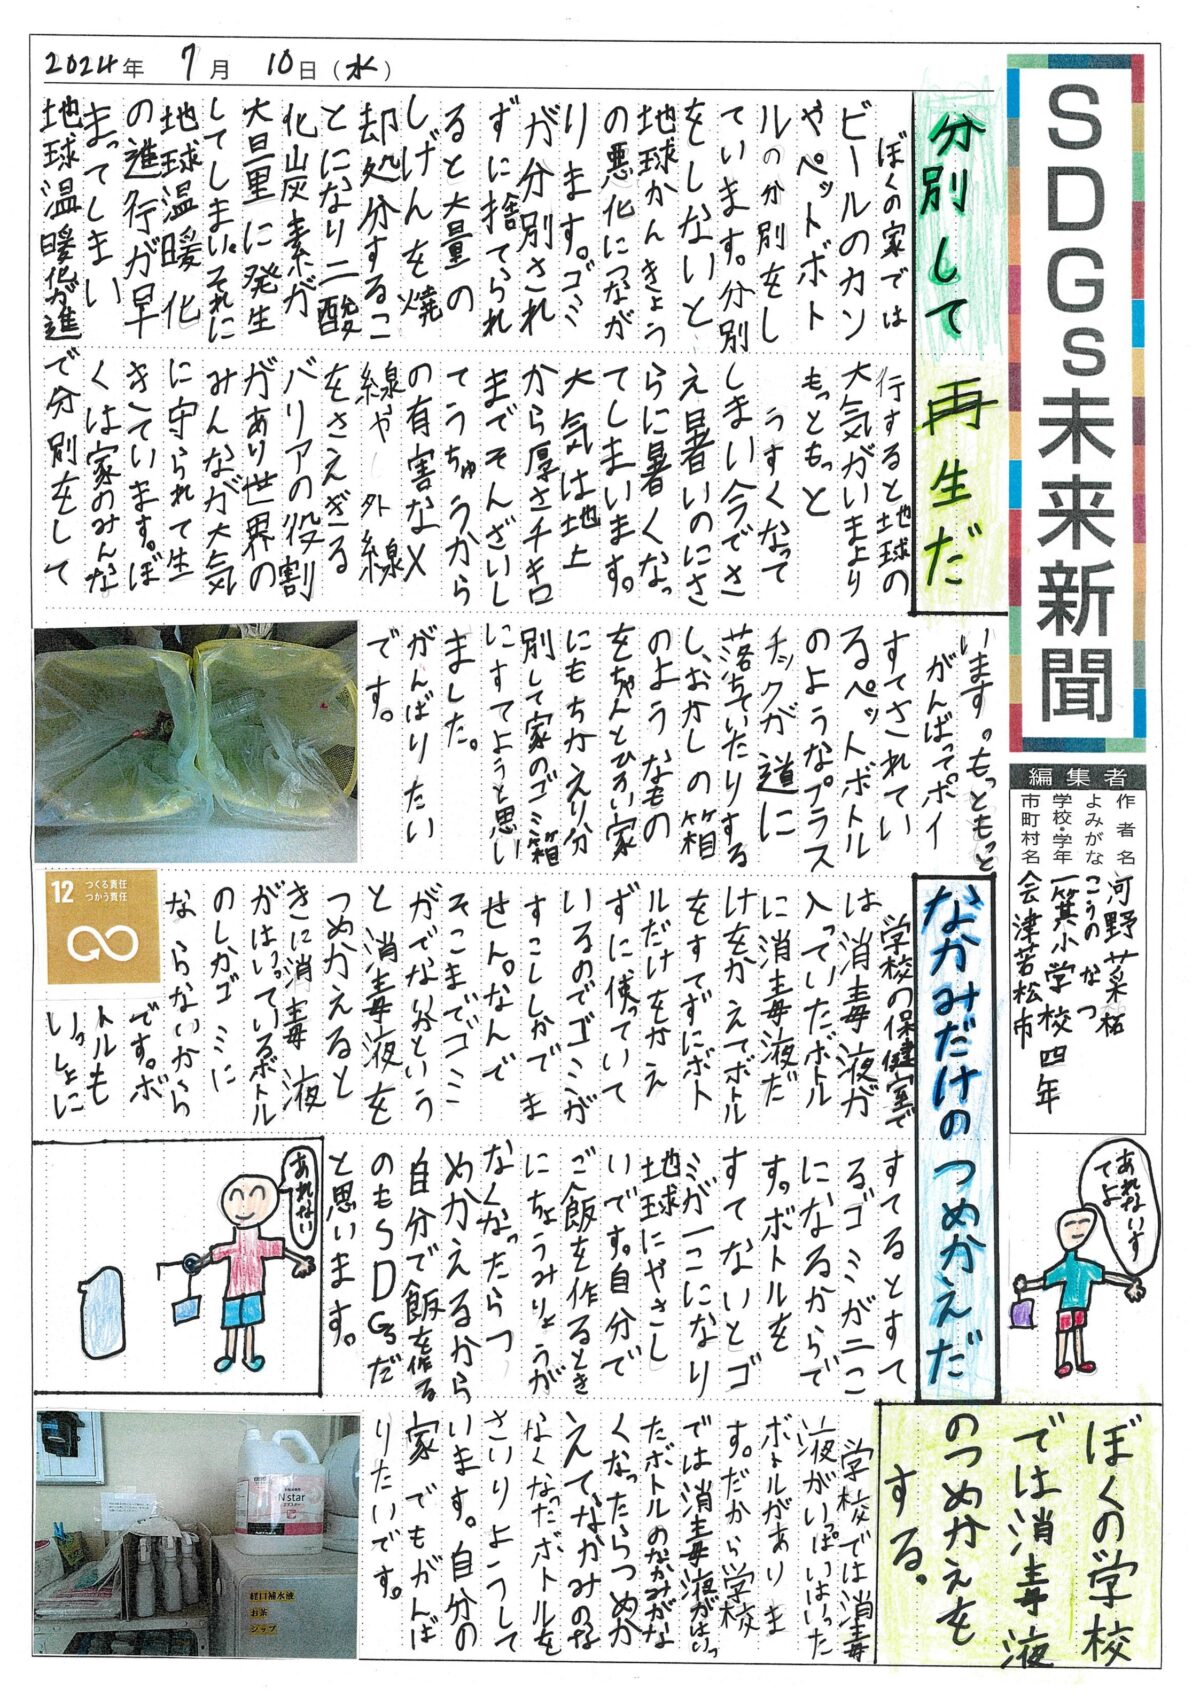 SDGs未来新聞
2024年 7月 10日(水)
編集者
作者名 河野菜柘
よみがな こうの なつ
学校・学年 一箕小学校 四年
市町村名 会津若松市
分別して再生だ
ぼくの家では
ビールのカン
やペットボト
ルの分別をし
ています。分別
をしないと
地球かんきょう
の悪化につなが
ります。ゴミ
が分別され
ずに捨てられ
ると大量の
しげんを焼
却処分するこ
とになり二酸
化炭素が
大量に発生
してしまい。それに
地球温暖化
の進行が早
まってしまい
地球温暖化が進
行すると地球の
大気がいまより
もっともっと
うすくなって
しまい今でさ
え暑いのにさ
らに暑くなっ
てしまいます。
大気は地上
から厚さ千キロ
までそんざいし
てうちゅうから
の有害なX
線や 外線
をさえぎる
バリアの役割
があり世界の
みんなが大気
に守られて生
きています。ぼ
くは家のみんな
で分別をして
います。もっともっと
がんばってポイ
すてされてい
るペットボトル
のようなプラス
チックが道に
落ちていたりする
し、おかしの箱
のようなもの
をちゃんとひろい家
にもちかえり分
別して家のゴミ箱
にすてようと思い
ました。
がんばりたい
です。
12 つくる責任
つかう責任
なかみだけのつめかえだ
学校の保健室で
は消毒液が
入っていたボトル
に消毒液だ
けをかえてボトル
をすてずにボト
ルだけをかえ
ずに使ってい
いるのでゴミが
すこししかでま
せん。なんで
そこまでゴミ
がでないかという
と消毒液を
つめかえると
きに消毒液
がはいっているボトル
のしかゴミに
ならないから
です。ボ
トルも
いっしょに
すてるとすて
るゴミが二こ
になるからで
す。ボトルを
すてないとゴ
ミが一こになり
地球にやさし
いです。自分で
ご飯を作るとき
にちょうみりょうが
なくなったらつ
めかえるから
自分で飯を作る
のもSDGsだ
と思います。
あれないすてよ
あれない
ぼくの学校
では消毒液
のつめかえを
する。
学校では消毒
液がいっぱいはいった
ボトルがありま
す。だから学校
では消毒液がはいっ
たボトルのなかみがな
くなったらつめか
えて、なかみのな
なくなったボトルを
さいりようして
います。自分の
家でもがんば
りたいです。
N star
経口補水液
お茶
シップ